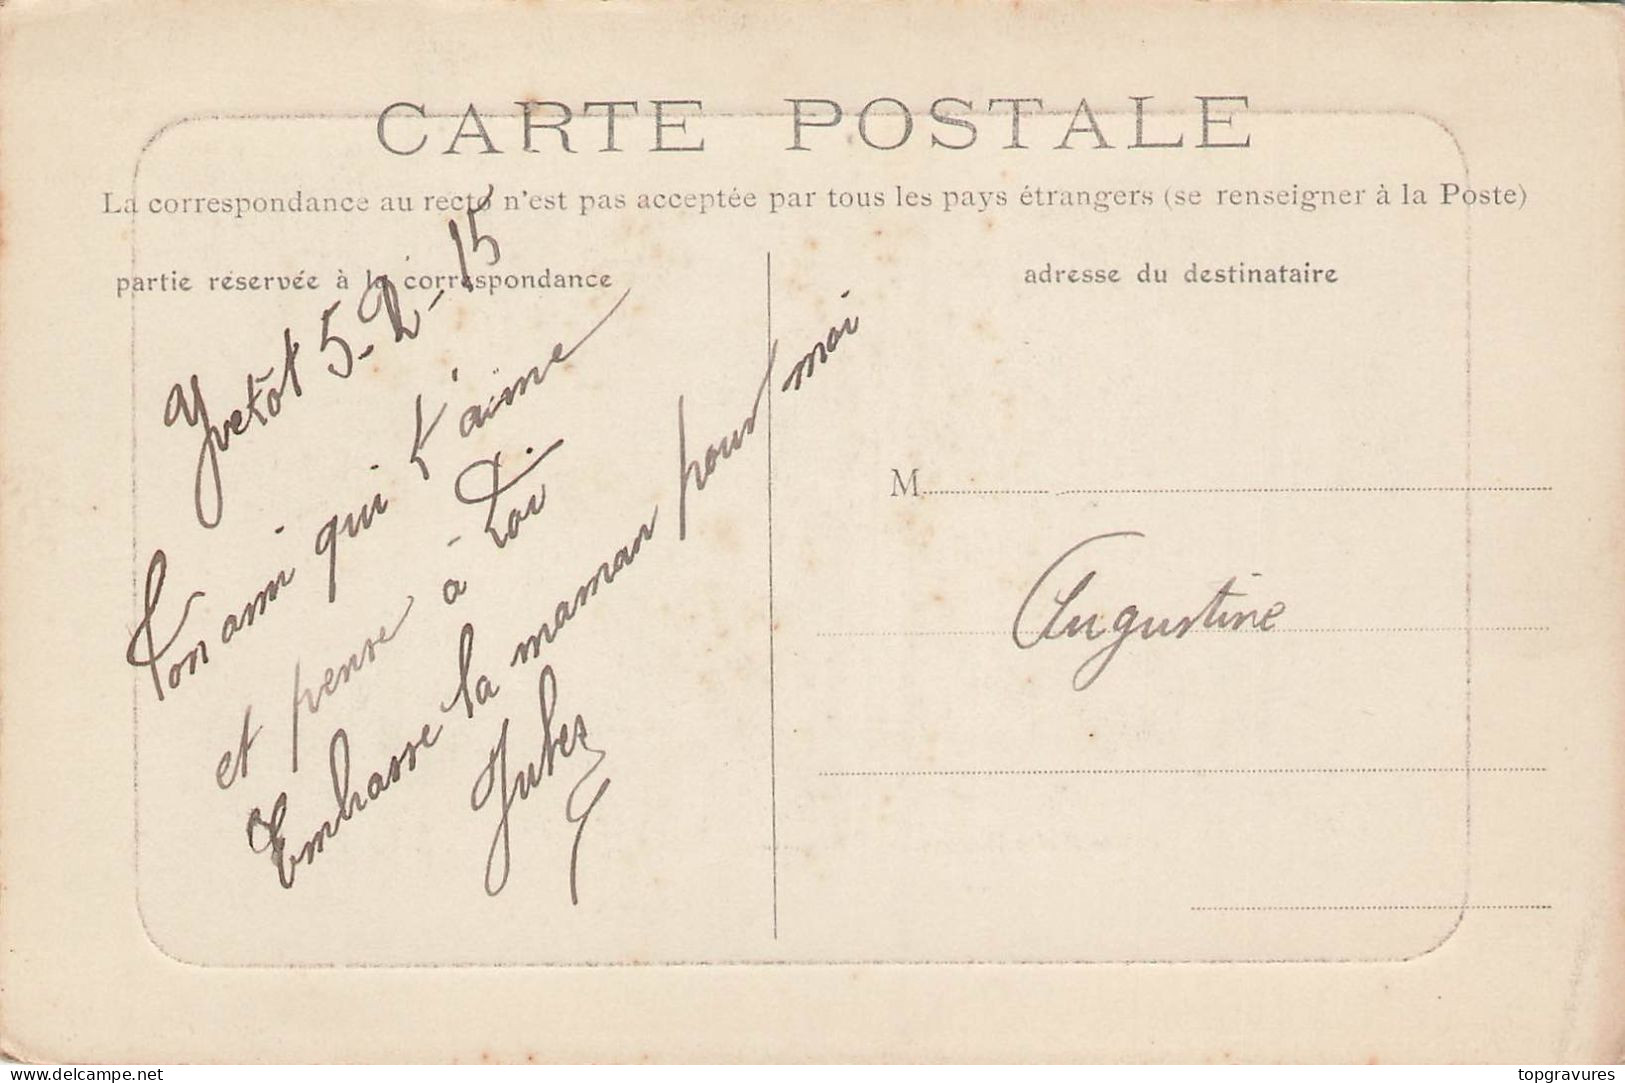 CARTE POSTALE
La correspondance au recto n'est pas acceptée par tous les pays étrangers (se renseigner à la Poste)
partie réservée à la correspondance
adresse du destinataire
Yvetot 5-2-15
Ton ami qui t'aime
et pense à toi.
Embrasse la maman pour moi
M
Augustine
delcampe.net
topgravures